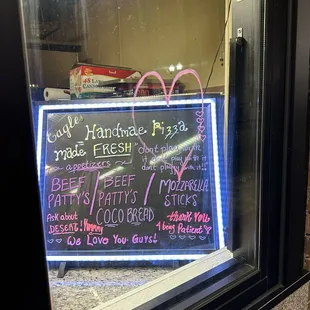 Eagle Handmade Pizza
made FRESH
"don't play with it
don't play with it!!
appetizers
BEEF PATTY'S
BEEF PATTY'S
COCO BREAD
MOZZARELLA STICKS
Ask about
DESERT! Yummy
thank You
4 being Patient
We Love You Guys!